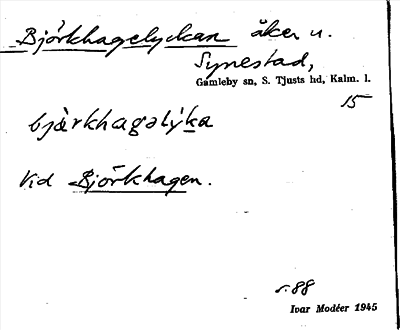 Björkhagelyckan åker u.
Synestad,
Gamleby sn, S. Tjusts hd, Kalm. l.
15
bjàrkhagəlýka
Vid Björkhagen.
s. 88
Ivar Modéer 1945